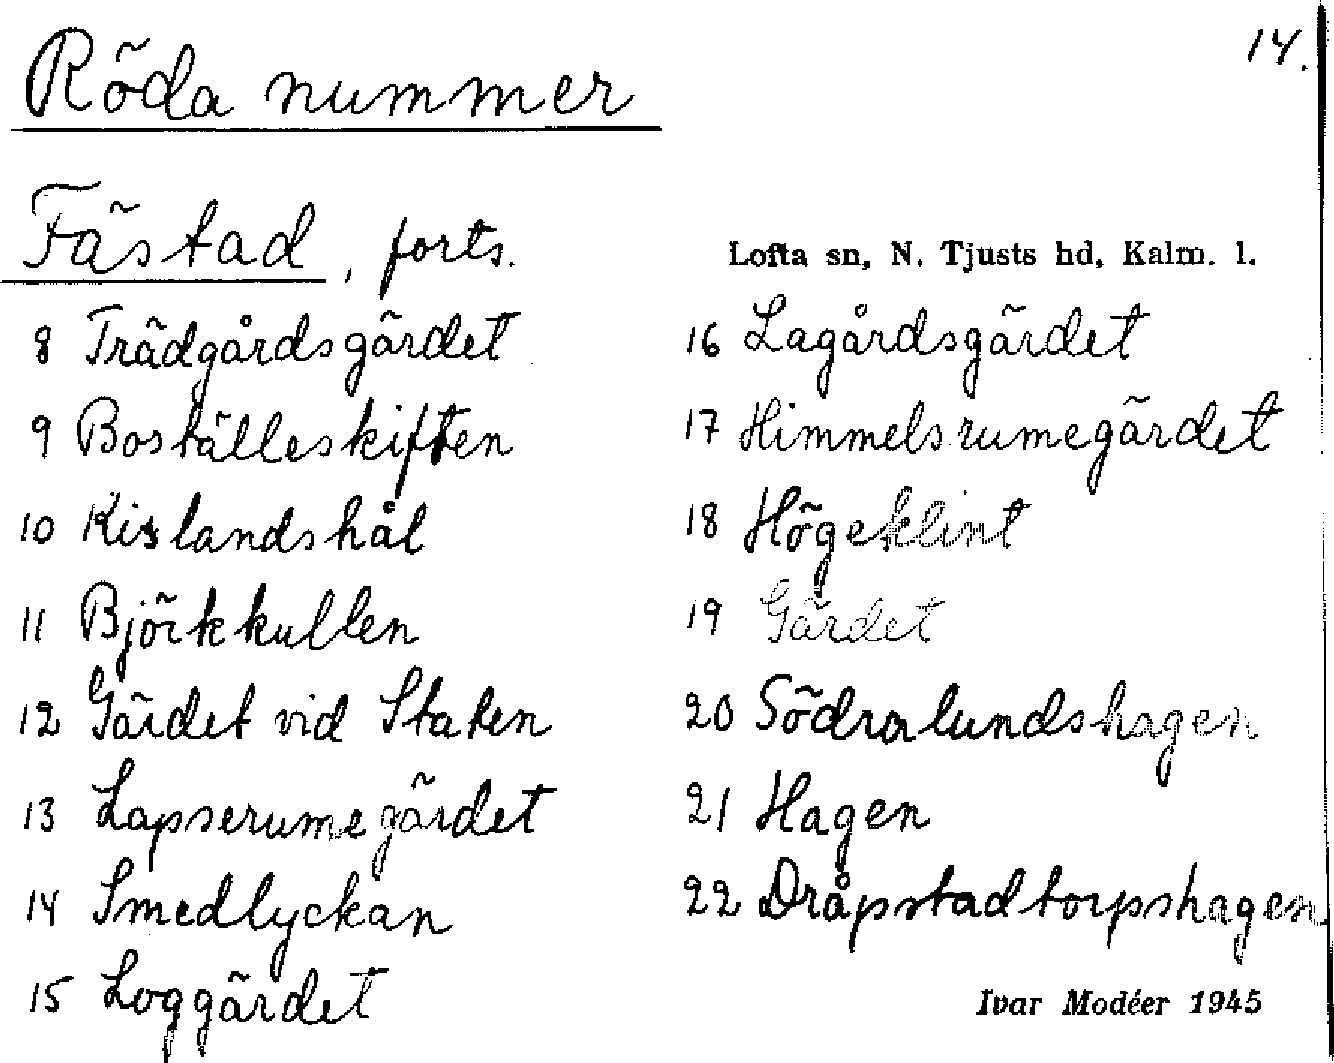 14.
Röda nummer
Fästad, forts.
Lofta sn, N. Tjusts hd, Kalm. l.
8 Trädgårdsgärdet
9 Boställeskiften
10 Kislandshål
11 Björkkullen
12 Gärdet vid Staken
13 Lapserumegärdet
14 Smedlyckan
15 Loggärdet
16 Lagårdsgärdet
17 Himmelsrumegärdet
18 Högeklint
19 Gärdet
20 Södralundshagen
21 Hagen
22 Dråpstadtorpshagen
Ivar Modéer 1945